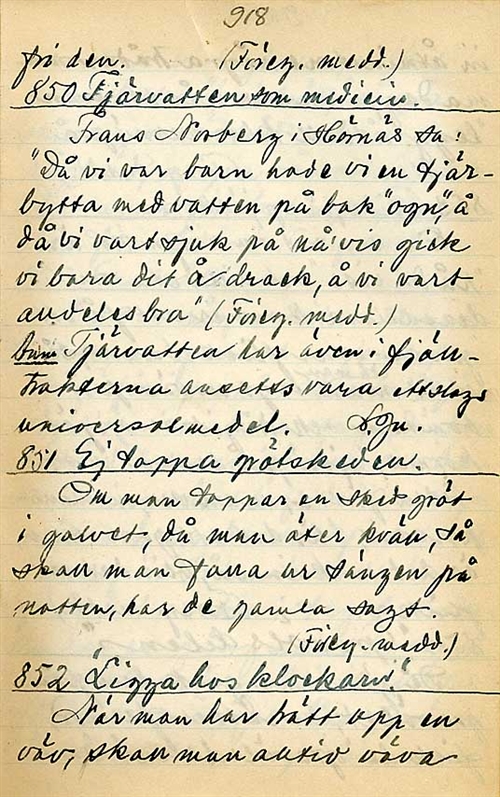 918
fri den. (Föreg. medd.)
850 Tjärvatten som medicin.
Frans Norberg i Hörnäs sa:
"Då vi var barn hade vi en tjär-
bytta med vatten på bak "ogn", å
då vi vart sjuk på nå'vis gick
vi bara dit å drack, å vi vart
andeles bra" (Föreg. medd.)
Tjärvatten har även i fjäll-
trakterna ansetts vara ett slags
universalmedel.
851 Ej tappa grötskeden.
Om man tappar en sked gröt
i golvet, då man äter kväll, så
skall man falla ur sängen på
natten, har de gamla sagt.
(Föreg. medd.)
852 "Ligga hos klockarn".
När man har satt upp en
väv, skall man alltid väva